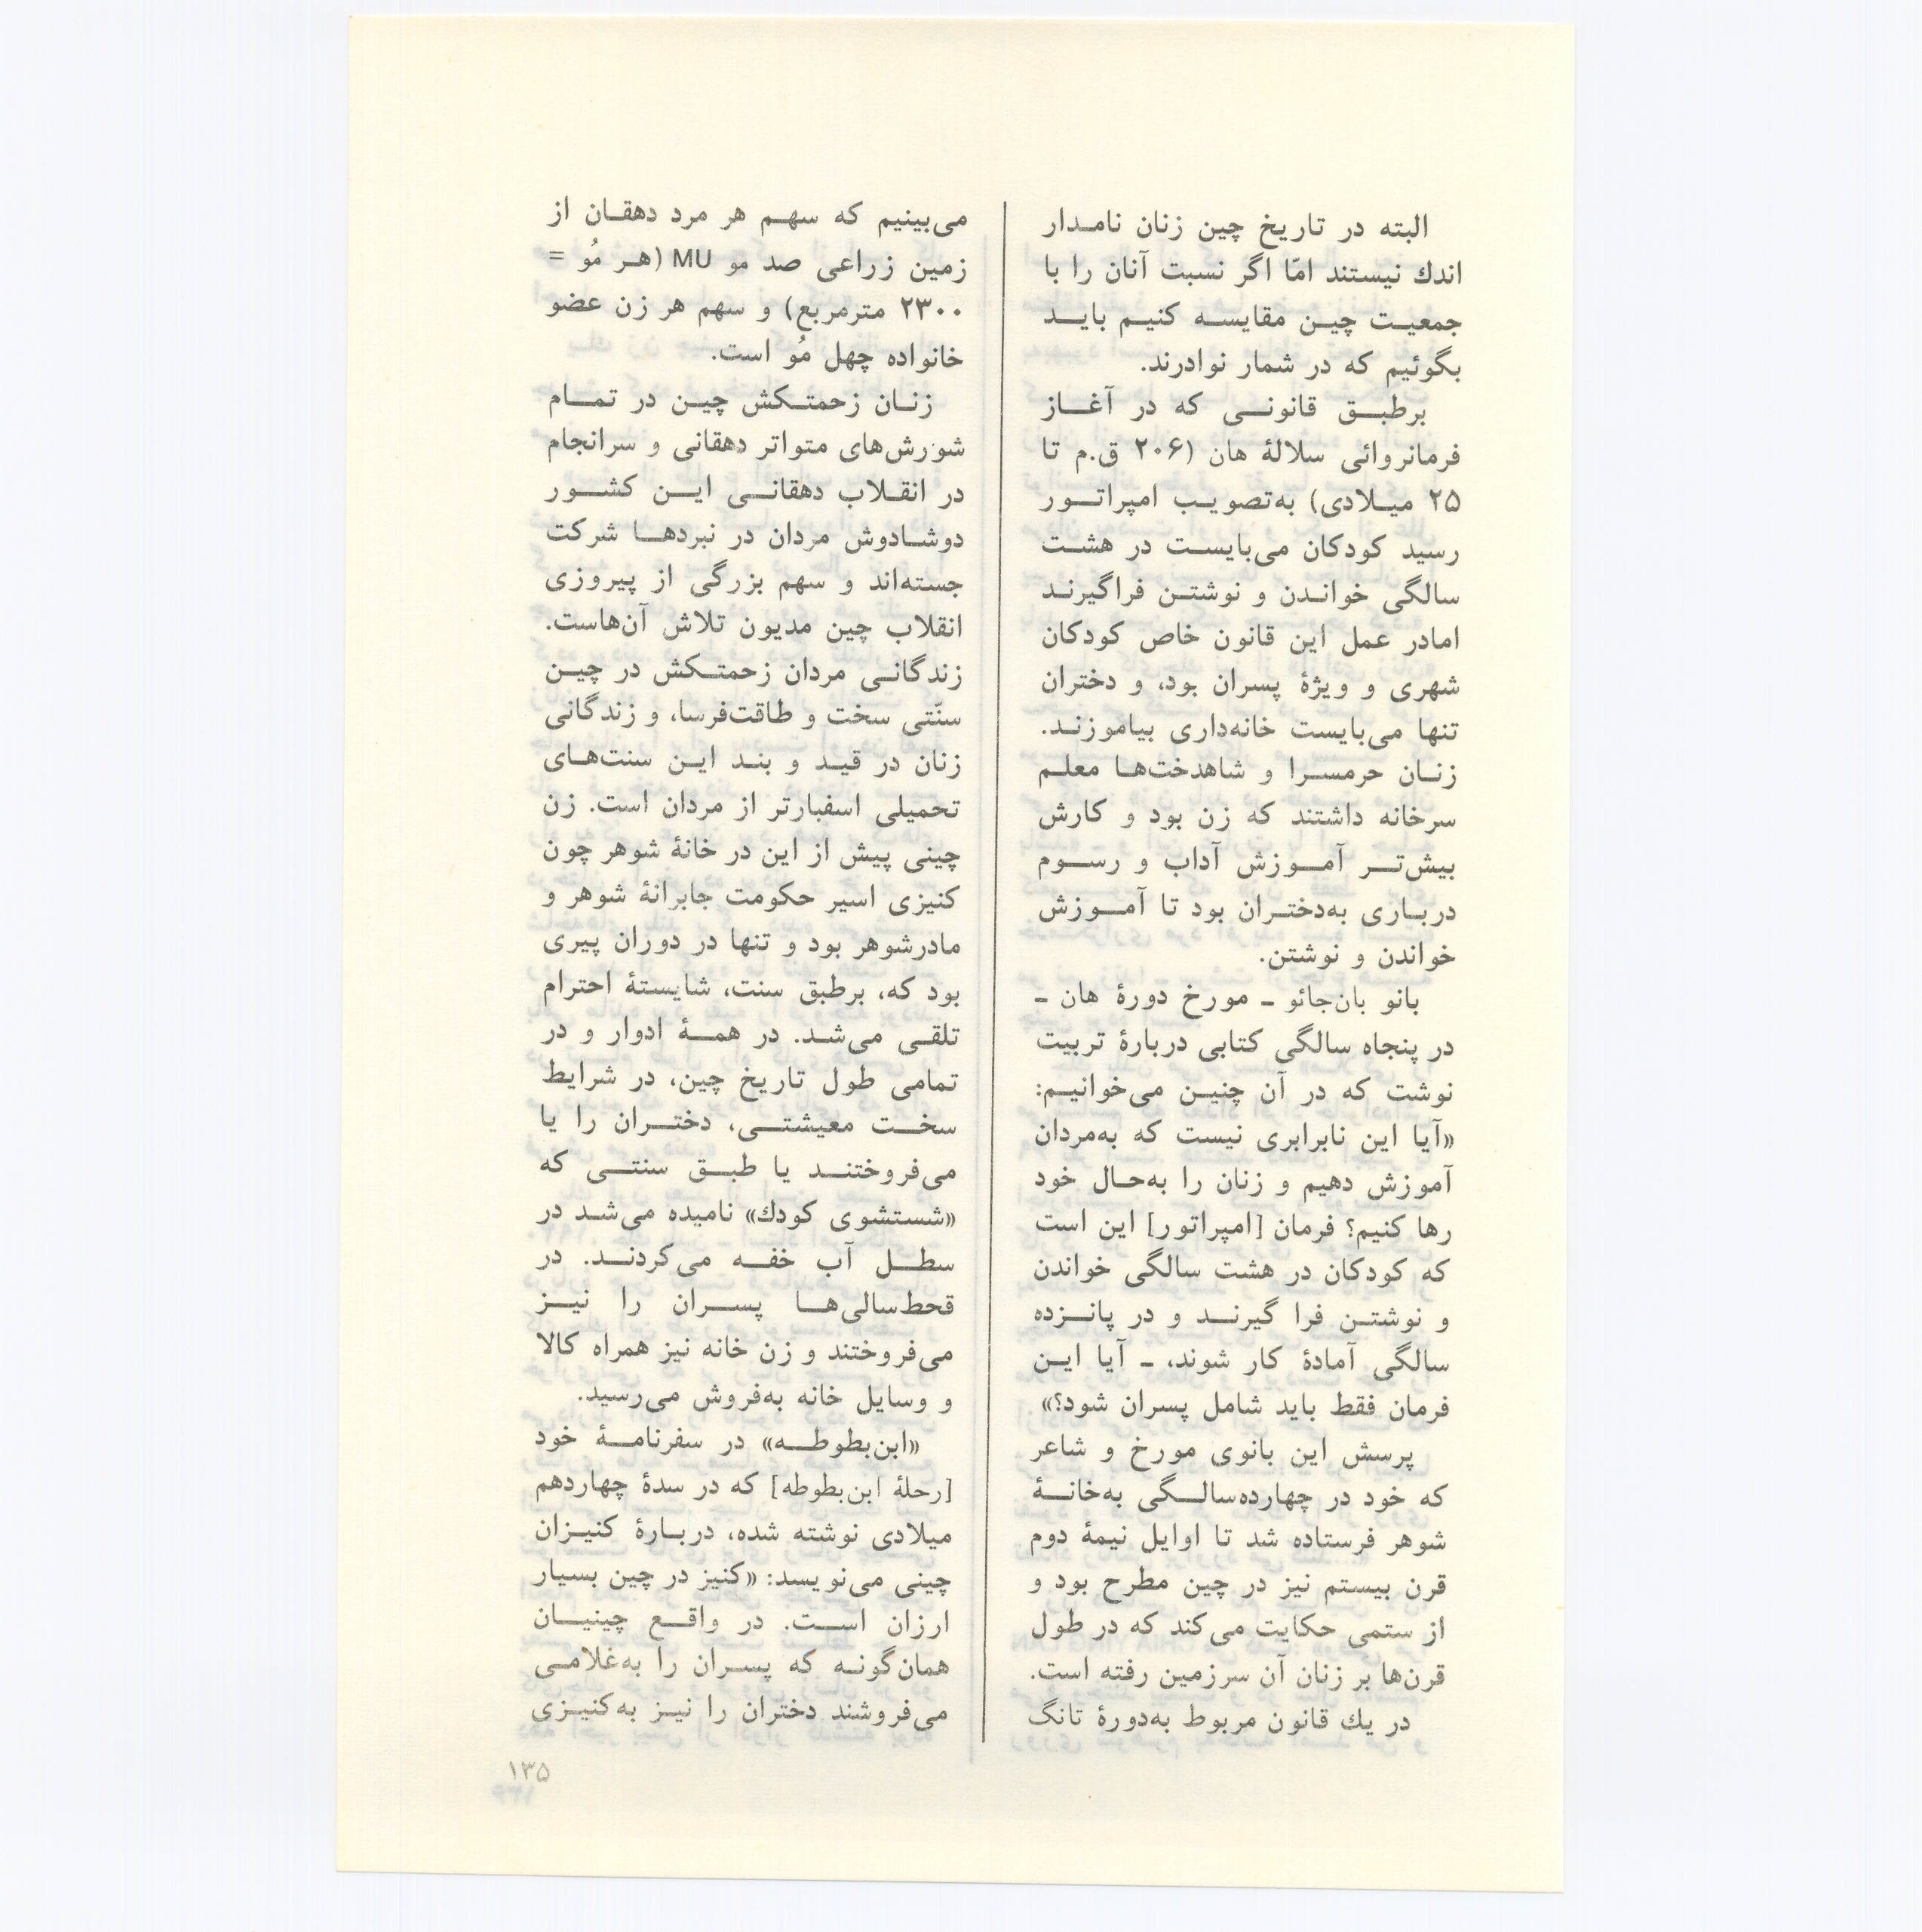 البته در تاریخ چین زنان نامدار
اندك نیستند امّا اگر نسبت آنان را با
جمعیت چین مقایسه کنیم باید
بگوئیم که در شمار نوادرند.
برطبق قانونی که در آغاز
فرمانروائی سلالهٔ هان (۲۰۶ ق.م تا
۲۵ میلادی) به‌تصویب امپراتور
رسید کودکان می‌بایست در هشت
سالگی خواندن و نوشتن فراگیرند
امادر عمل این قانون خاص کودکان
شهری و ویژهٔ پسران بود، و دختران
تنها می‌بایست خانه‌داری بیاموزند.
زنان حرمسرا و شاهدخت‌ها معلم
سرخانه داشتند که زن بود و کارش
بیش‌تر آموزش آداب و رسوم
درباری به‌دختران بود تا آموزش
خواندن و نوشتن.
بانو بان‌جائو ـ مورخ دورهٔ هان ـ
در پنجاه سالگی کتابی دربارهٔ تربیت
نوشت که در آن چنین می‌خوانیم:
«آیا این نابرابری نیست که به‌مردان
آموزش دهیم و زنان را به‌حال خود
رها کنیم؟ فرمان [امپراتور] این است
که کودکان در هشت سالگی خواندن
و نوشتن فرا گیرند و در پانزده
سالگی آمادهٔ کار شوند، ـ آیا این
فرمان فقط باید شامل پسران شود؟»
پرسش این بانوی مورخ و شاعر
که خود در چهارده‌سالگی به‌خانهٔ
شوهر فرستاده شد تا اوایل نیمهٔ دوم
قرن بیستم نیز در چین مطرح بود و
از ستمی حکایت می‌کند که در طول
قرن‌ها بر زنان آن سرزمین رفته است.
در یك قانون مربوط به‌دورهٔ تانگ
می‌بینیم که سهم هر مرد دهقان از
زمین زراعی صد مو MU (هر مُو =
۲۳۰۰ مترمربع) و سهم هر زن عضو
خانواده چهل مُو است.
زنان زحمتکش چین در تمام
شورش‌های متواتر دهقانی و سرانجام
در انقلاب دهقانی این کشور
دوشادوش مردان در نبردها شرکت
جسته‌اند و سهم بزرگی از پیروزی
انقلاب چین مدیون تلاش آن‌هاست.
زندگانی مردان زحمتکش در چین
سنّتی سخت و طاقت‌فرسا، و زندگانی
زنان در قید و بند این سنت‌های
تحمیلی اسفبارتر از مردان است. زن
چینی پیش از این در خانهٔ شوهر چون
کنیزی اسیر حکومت جابرانهٔ شوهر و
مادرشوهر بود و تنها در دوران پیری
بود که، برطبق سنت، شایستهٔ احترام
تلقی می‌شد. در همهٔ ادوار و در
تمامی طول تاریخ چین، در شرایط
سخت معیشتی، دختران را یا
می‌فروختند یا طبق سنتی که
«شستشوی کودك» نامیده می‌شد در
سطل آب خفه می‌کردند. در
قحط‌سالی‌ها پسران را نیز
می‌فروختند و زن خانه نیز همراه کالا
و وسایل خانه به‌فروش می‌رسید.
«ابن‌بطوطه» در سفرنامهٔ خود
[رحلهٔ ابن‌بطوطه] که در سدهٔ چهاردهم
میلادی نوشته شده، دربارهٔ کنیزان
چینی می‌نویسد: «کنیز در چین بسیار
ارزان است. در واقع چینیان
همان‌گونه که پسران را به‌غلامی
می‌فروشند دختران را نیز به‌کنیزی
۱۳۵